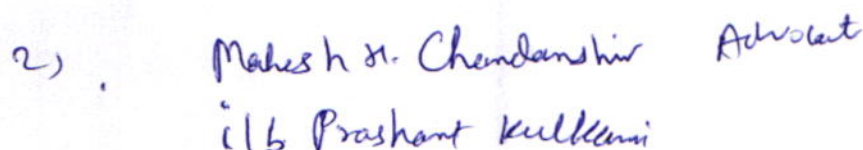 2) . Mahesh H. Chandanshiv Advocat
i/b Prashant Kulkarni